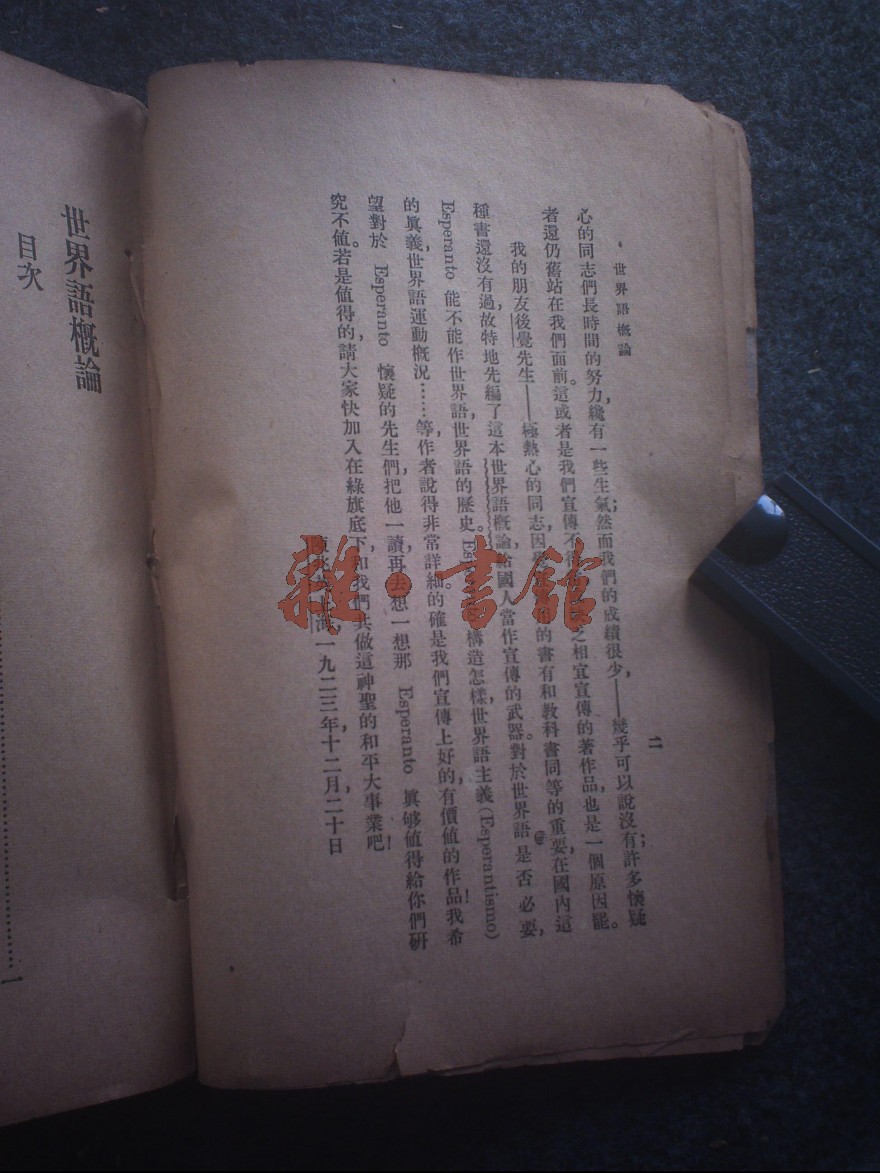 世界語概論
二
心的同志們長時間的努力,纔有一些生氣;然而我們的成績很少,——幾乎可以說沒有;許多懷疑
者還仍舊站在我們面前。這或者是我們宣傳不得之相宜宣傳的著作品,也是一個原因罷。
我的朋友後覺先生——極熱心的同志因的書有和教科書同等的重要,在國內這
種書還沒有過,故特地先編了這本世界語概論給國人當作宣傳的武器。對於世界語是否必要,
Esperanto 能不能作世界語,世界語的歷史。構造怎樣,世界語主義(Esperantismo)
的眞義,世界語運動概況……等,作者說得非常詳細。的確是我們宣傳上好的,有價値的作品!我希
望對於 Esperanto 懷疑的先生們,把他一讀,再去想一想那 Esperanto 眞够値得給你們研
究不値。若是値得的,請大家快加入在綠旗底下,和我們共做這神聖的和平大事業吧!
海,一九二三年,十二月二十日
世界語概論
目次
一
雜·書館